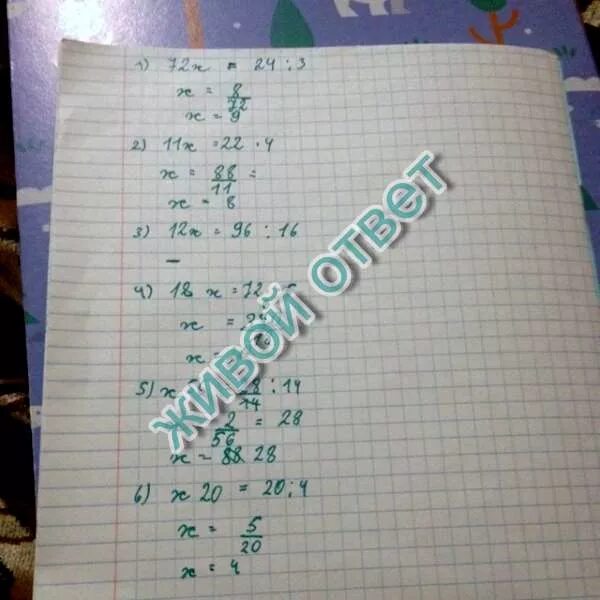 1) 72x = 24 : 3
x = 8/72
x = 9
2) 11x = 22 · 4
x = 88/11 =
x = 8
3) 12x = 96 : 16
–
4) 18 x = 72
x =
x =
5) x : 14
2/56 = 28
x = 88 28
6) x 20 = 20 : 4
x = 5/20
x = 4
ЖИВОЙ ОТВЕТ